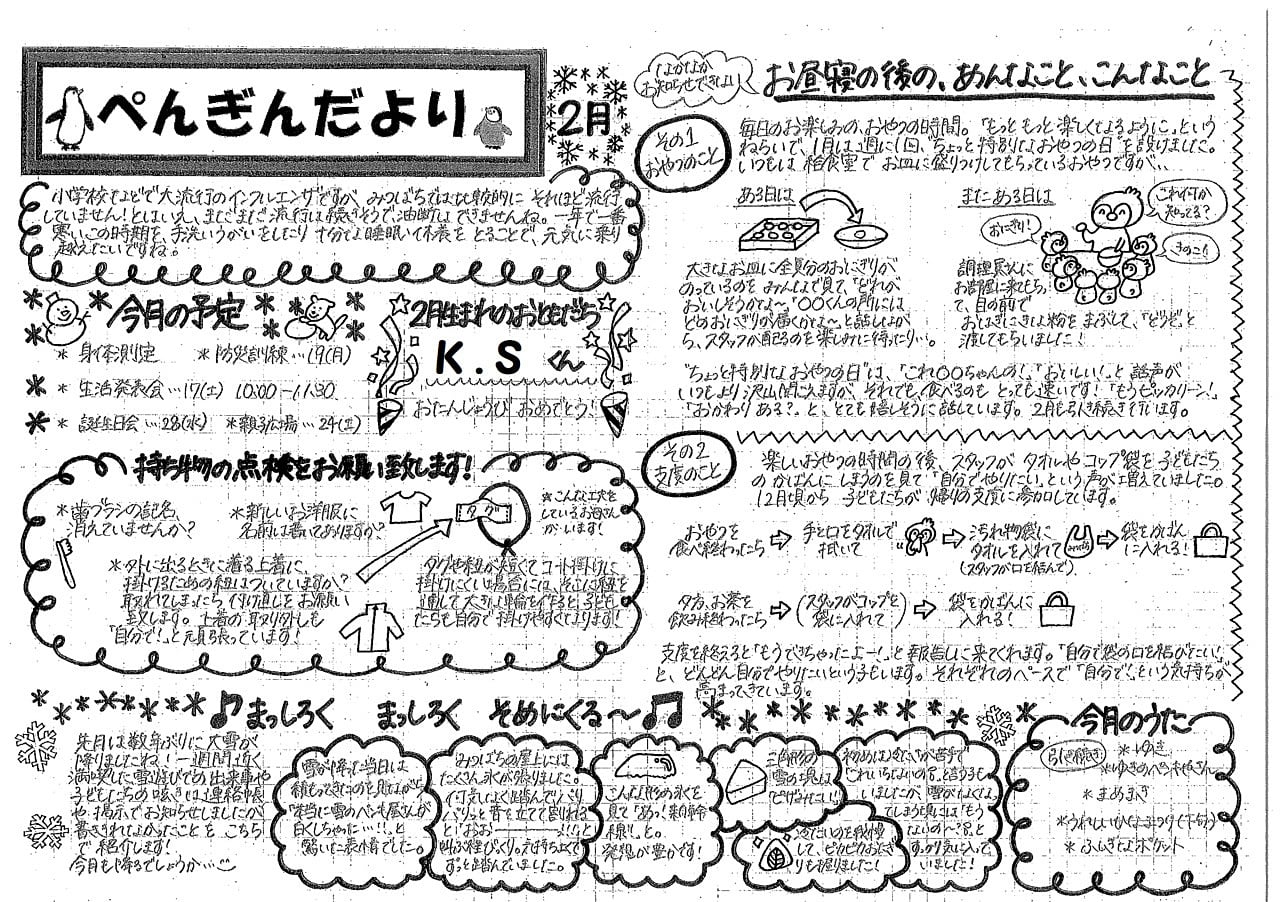 ぺんぎんだより
2月
小学校などで大流行のインフルエンザですが、みつばちでは比較的に それほど流行
していません！とはいえ、まだまだ流行は続きそうで、油断はできませんね。一年で一番
寒いこの時期を、手洗いうがいをしたり 十分な睡眠、休養を とることで、元気に乗り
越えたいですね。
今月の予定
* 身体測定
* 防災訓練…19(月)
* 生活発表会…17(土) 10:00-11:30
* 誕生日会…28(水)
*親子広場…24(土)
2月生まれのおともだち
K.S くん
おたんじょうび おめでとう！
持ち物の点検をお願い致します！
*歯ブラシの記名、
消えていませんか？
*新しいお洋服に
名前は書いてありますか？
タグ
*こんな工夫を
しているお母さん
がいます！
*外に出るときに着る上着に、
掛けるための紐はついていますか？
取れてしまったら 付け直しを お願い
致します。上着の取り外しも
「自分で！」と頑張っています！
タグや紐が短くてコート掛けに
掛けにくい場合には、そこに紐を
通して大きな輪を作ると、子ども
たちも自分で掛けやすくなります！
なかなか
お知らせできない
お昼寝の後の、あんなこと、こんなこと
その1
おやつのこと
毎日のお楽しみの、おやつの時間。「もっと もっと楽しくなるように」という
ねらいで、1月は週に1回、“ちょっと特別なおやつの日”を設けました。
いつもは 給食室で お皿に盛りつけしてもらっているおやつですが…
ある日は
大きなお皿に全員分のおにぎりが
のっているのを みんなで見て、「どれが
おいしそうかな〜」「〇〇くんの所には
どのおにぎりが届くかな〜」と話しなが
ら、スタッフが配るのを楽しみに待ったり…。
またある日は
これ何か
知ってる？
おにぎり！
きのこ！
調理員さんに
お部屋に来てもらっ
て、目の前で
おはぎにきな粉をまぶして、「どうぞ」と
渡してもらいました！
“ちょっと特別なおやつの日”は、「これ〇〇ちゃんの！」「おいしい！」と話声が
いつもより沢山聞こえますが、それでも、食べるのも とっても速いです！「もうピッカリーン！」
「おかわり ある？」と、とても嬉しそうに話しています。2月も引き続き行います。
その2
支度のこと
楽しいおやつの時間の後、スタッフが タオルや コップ袋を子どもたち
の かばんに しまうのを見て 「自分でやりたい」という声が増えていました。
12月頃から 子どもたちが 帰りの支度に参加しています。
おやつを
食べ終わったら
⇨ 手と口をタオルで
拭いて
⇨ 汚れ物袋に
タオルを入れて
(スタッフが口を結んで)
⇨ 袋をかばん
に入れる！
夕方、お茶を
飲み終わったら
⇨ (スタッフがコップを
袋に入れて)
⇨ 袋をかばんに
入れる！
支度を終えると「もうできちゃったよー！」と 報告しに来てくれます。「自分で袋の口を結びたい！」
と、どんどん自分でやりたいという子もいます。それぞれのペースで「自分で！」という気持ちが
高まってきています。
♪まっしろく まっしろく そめにくる〜♫
先月は数年ぶりに大雪が
降りましたね！一週間近く
満喫した雪遊びでの出来事や
子どもたちの呟きは連絡帳
や掲示でお知らせしましたが
書ききれなかったことを こちら
で紹介します！
今月も降るでしょうか…
雪が降った当日は
積もってきたのを見ながら
「本当に雪のペンキ屋さんが
白くしちゃった…！！」と
驚いた表情でした。
みつばちの屋上には
たくさん氷が張りました。
何気なく踏んでパリ
パリッと音を立てて割れる
と「おおーーー！！！」と
叫ぶ程びっくり。気持ちよくて
ずっと踏んでいました。
こんな形の氷を
見て「あっ！新幹
線！」と。
発想が豊かです！
三角形の
雪の塊は
「ピザみたい！」
冷たいのを我慢
して、ピカピカおにぎ
りも握りました！
初めは冷たいが苦手で
「これいらないの？」と言う子も
いましたが、雪がなくな
ってしまう頃には「もう
ないの〜？」と
すっかり気に入って
いました！
今月のうた
引き続き
*ゆき
*ゆきのぺんきやさん
*まめまき
*うれしいひなまつり(下旬)
*ふしぎなポケット